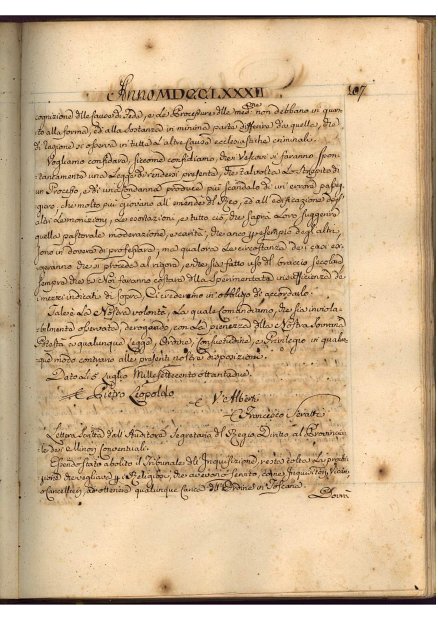 Anno MDCCLXXXII 107
cognizione delle Cause di Fede, e le Procedure delle med.e non debbano in quan-
to alla forma, ed alla sostanza in minima parte differire da quelle, che
di Ragione si osserva in tutte l'altre Cause ecclesiastiche criminali.
Vogliamo confidare, siccome confidiamo, che i Vescovi si faranno spon-
taneamente una Legge di rendersi presente, che talvolta lo strepito di
un Processo, e di una Condanna produce più scandalo di un errore passeg-
giero, che molto più giovano all'emenda del Reo, ed all'edificazione de'
altri le monizioni, le esortazioni, e tutto ciò, che saprà Loro suggerire
quella pastorale moderazione, e carità, che anco per esempio degli altri
sono in dovere di professare; ma qualora le circostanze dei casi esi-
geranno che si proceda al rigore, e che sia fatto uso del braccio secolare
sempre che a Noi faranno costare della sperimentata insufficienza dei
mezzi indicati di sopra, Ci crederemo in obbligo di accordarlo.
Tale è la Nostra volontà, la quale Comandiamo, che sia inviola-
bilmente osservata, derogando con la pienezza della Nostra Sovrana
Potestà a qualunque Legge, Ordine, Consuetudine, e Privilegio in qualun-
que modo contrario alle presenti nostre disposizioni.
Dato li 5 Luglio Millesettecento ottantadue.
Pietro Leopoldo
V. Alberti
Francesco Seratti
Lettera scritta dall'Auditore Segretario del Regio Diritto al Provincia-
le dei Minori Conventuali.
Essendo stato abolito il Tribunale dell'Inquisizione, resta tolta la proi-
bizione che vegliava per i Religiosi, che avevano servito, come Inquisitori, Vicari,
o Cancellieri, ad ottenere qualunque Carica dell'Ordine in Toscana.